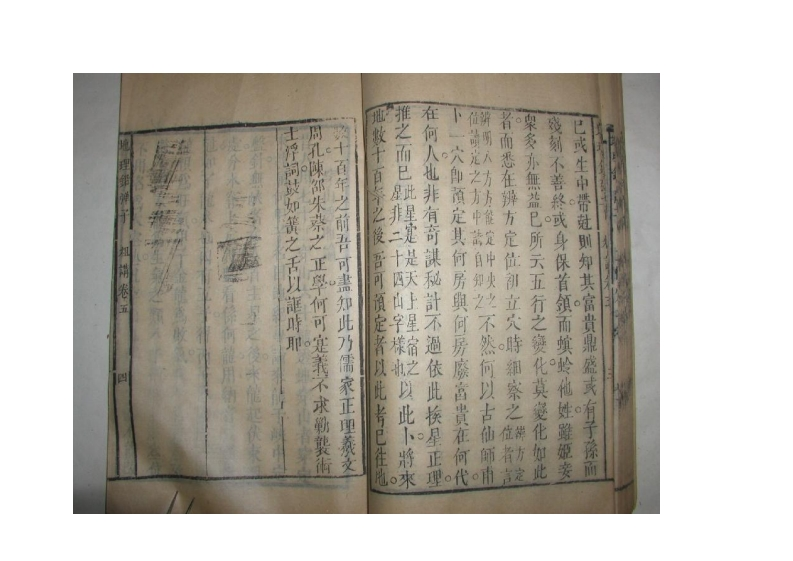 已或生中帶尅則知其富貴鼎盛或有子孫而
殘刻不善終或身保首領而螟蛉他姓雖姬妾
衆多亦無益已所云五行之變化莫變化如此
者而悉在辨方定位初立穴時細察之辨方定位者言
辨明八方方能定中央之位論定之方中諸自知之不然何以古仙師甫
卜一穴卽預定其何房興何房廢富貴在何代
在何人也非有奇謀秘計不過依此挨星正理
推之而已此星寔是天上星宿之星非二十四山字樣也以此卜將來
地數十百年之後吾可預定者以此考已往地
數十百年之前吾可盡知此乃儒家正理羲文
周孔陳邵朱蔡之正學何可定義不求勦襲術
士浮詞鼓如簧之舌以誑時耶
地理 卷五 四